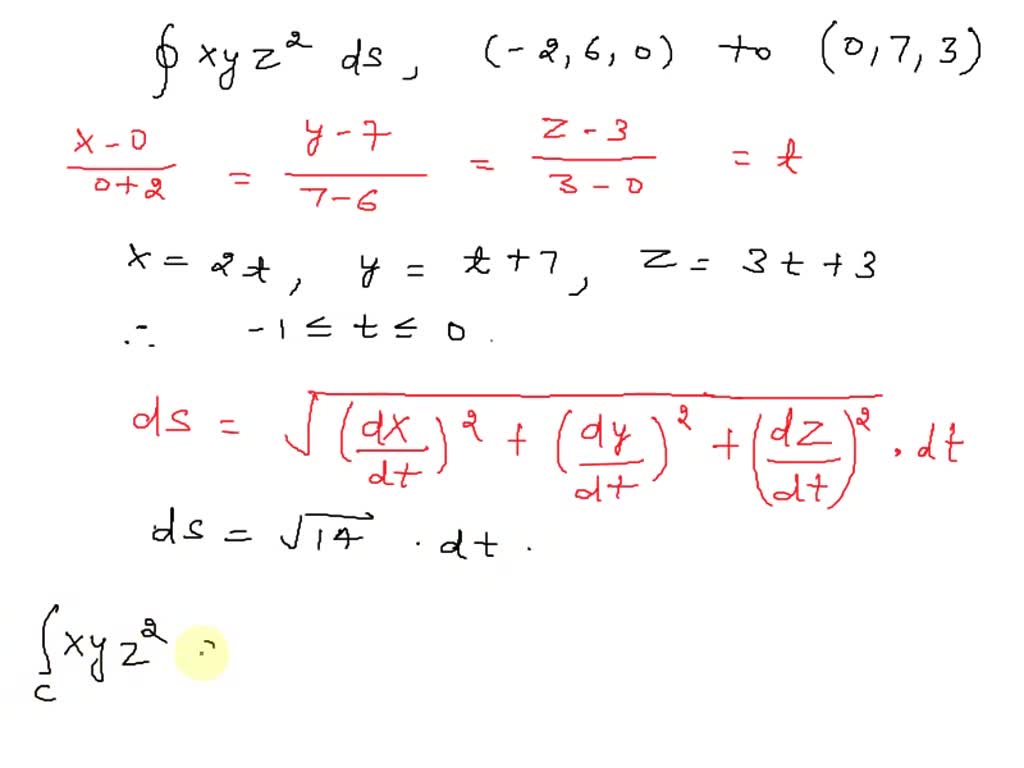 ∮ xyz² ds, (-2, 6, 0) to (0, 7, 3)
(x - 0)/(0 + 2) = (y - 7)/(7 - 6) = (z - 3)/(3 - 0) = t
x = 2t, y = t + 7, z = 3t + 3
∴ -1 ≤ t ≤ 0.
ds = √((dx/dt)² + (dy/dt)² + (dz/dt)²) . dt
ds = √14 . dt .
∫_C xyz²